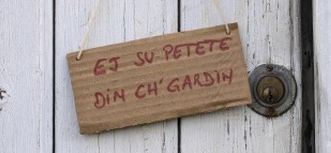 EJ SU PETETE
DIN CH'GARDIN